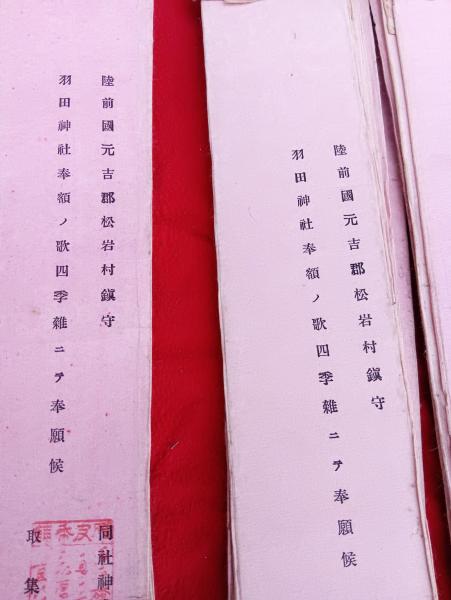 陸前國元吉郡松岩村鎮守
羽田神社奉額ノ歌四季雜ニテ奉願候
陸前國元吉郡松岩村鎮守
羽田神社奉額ノ歌四季雜ニテ奉願候
同社神
取集